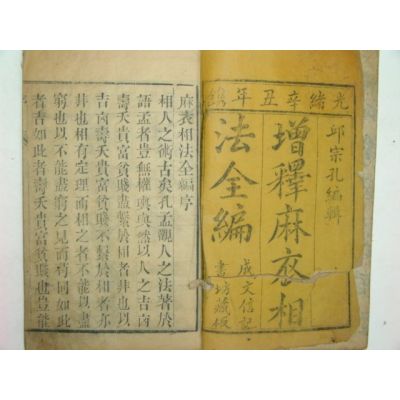 光緒辛丑年鐫
邱宗孔編輯
增釋麻衣相
法全編
成文信記
書坊藏板
麻衣相法全編序
相人之術古矣孔孟觀人之法著於
語孟者豈無權輿與然以人之吉凶
壽夭貴富貧賤盡繫於相者非也以
吉凶壽夭貴富貧賤不繫於相者亦
非也相有定理而相之者不能以盡
窮也以不能盡窮之見而
者吉如此者壽夭貴富貧賤也豈能